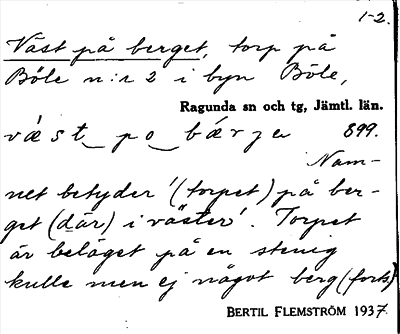 1-2.
Väst på berget, torp på
Böle n:r 2 i byn Böle,
Ragunda sn och tg, Jämtl. län.
væ̀st po bǽrʒe 899.
Nam-
net betyder '(torpet) på ber-
get (där) i väster'. Torpet
är beläget på en stenig
kulle men ej något berg (forts.)
BERTIL FLEMSTRÖM 1937.